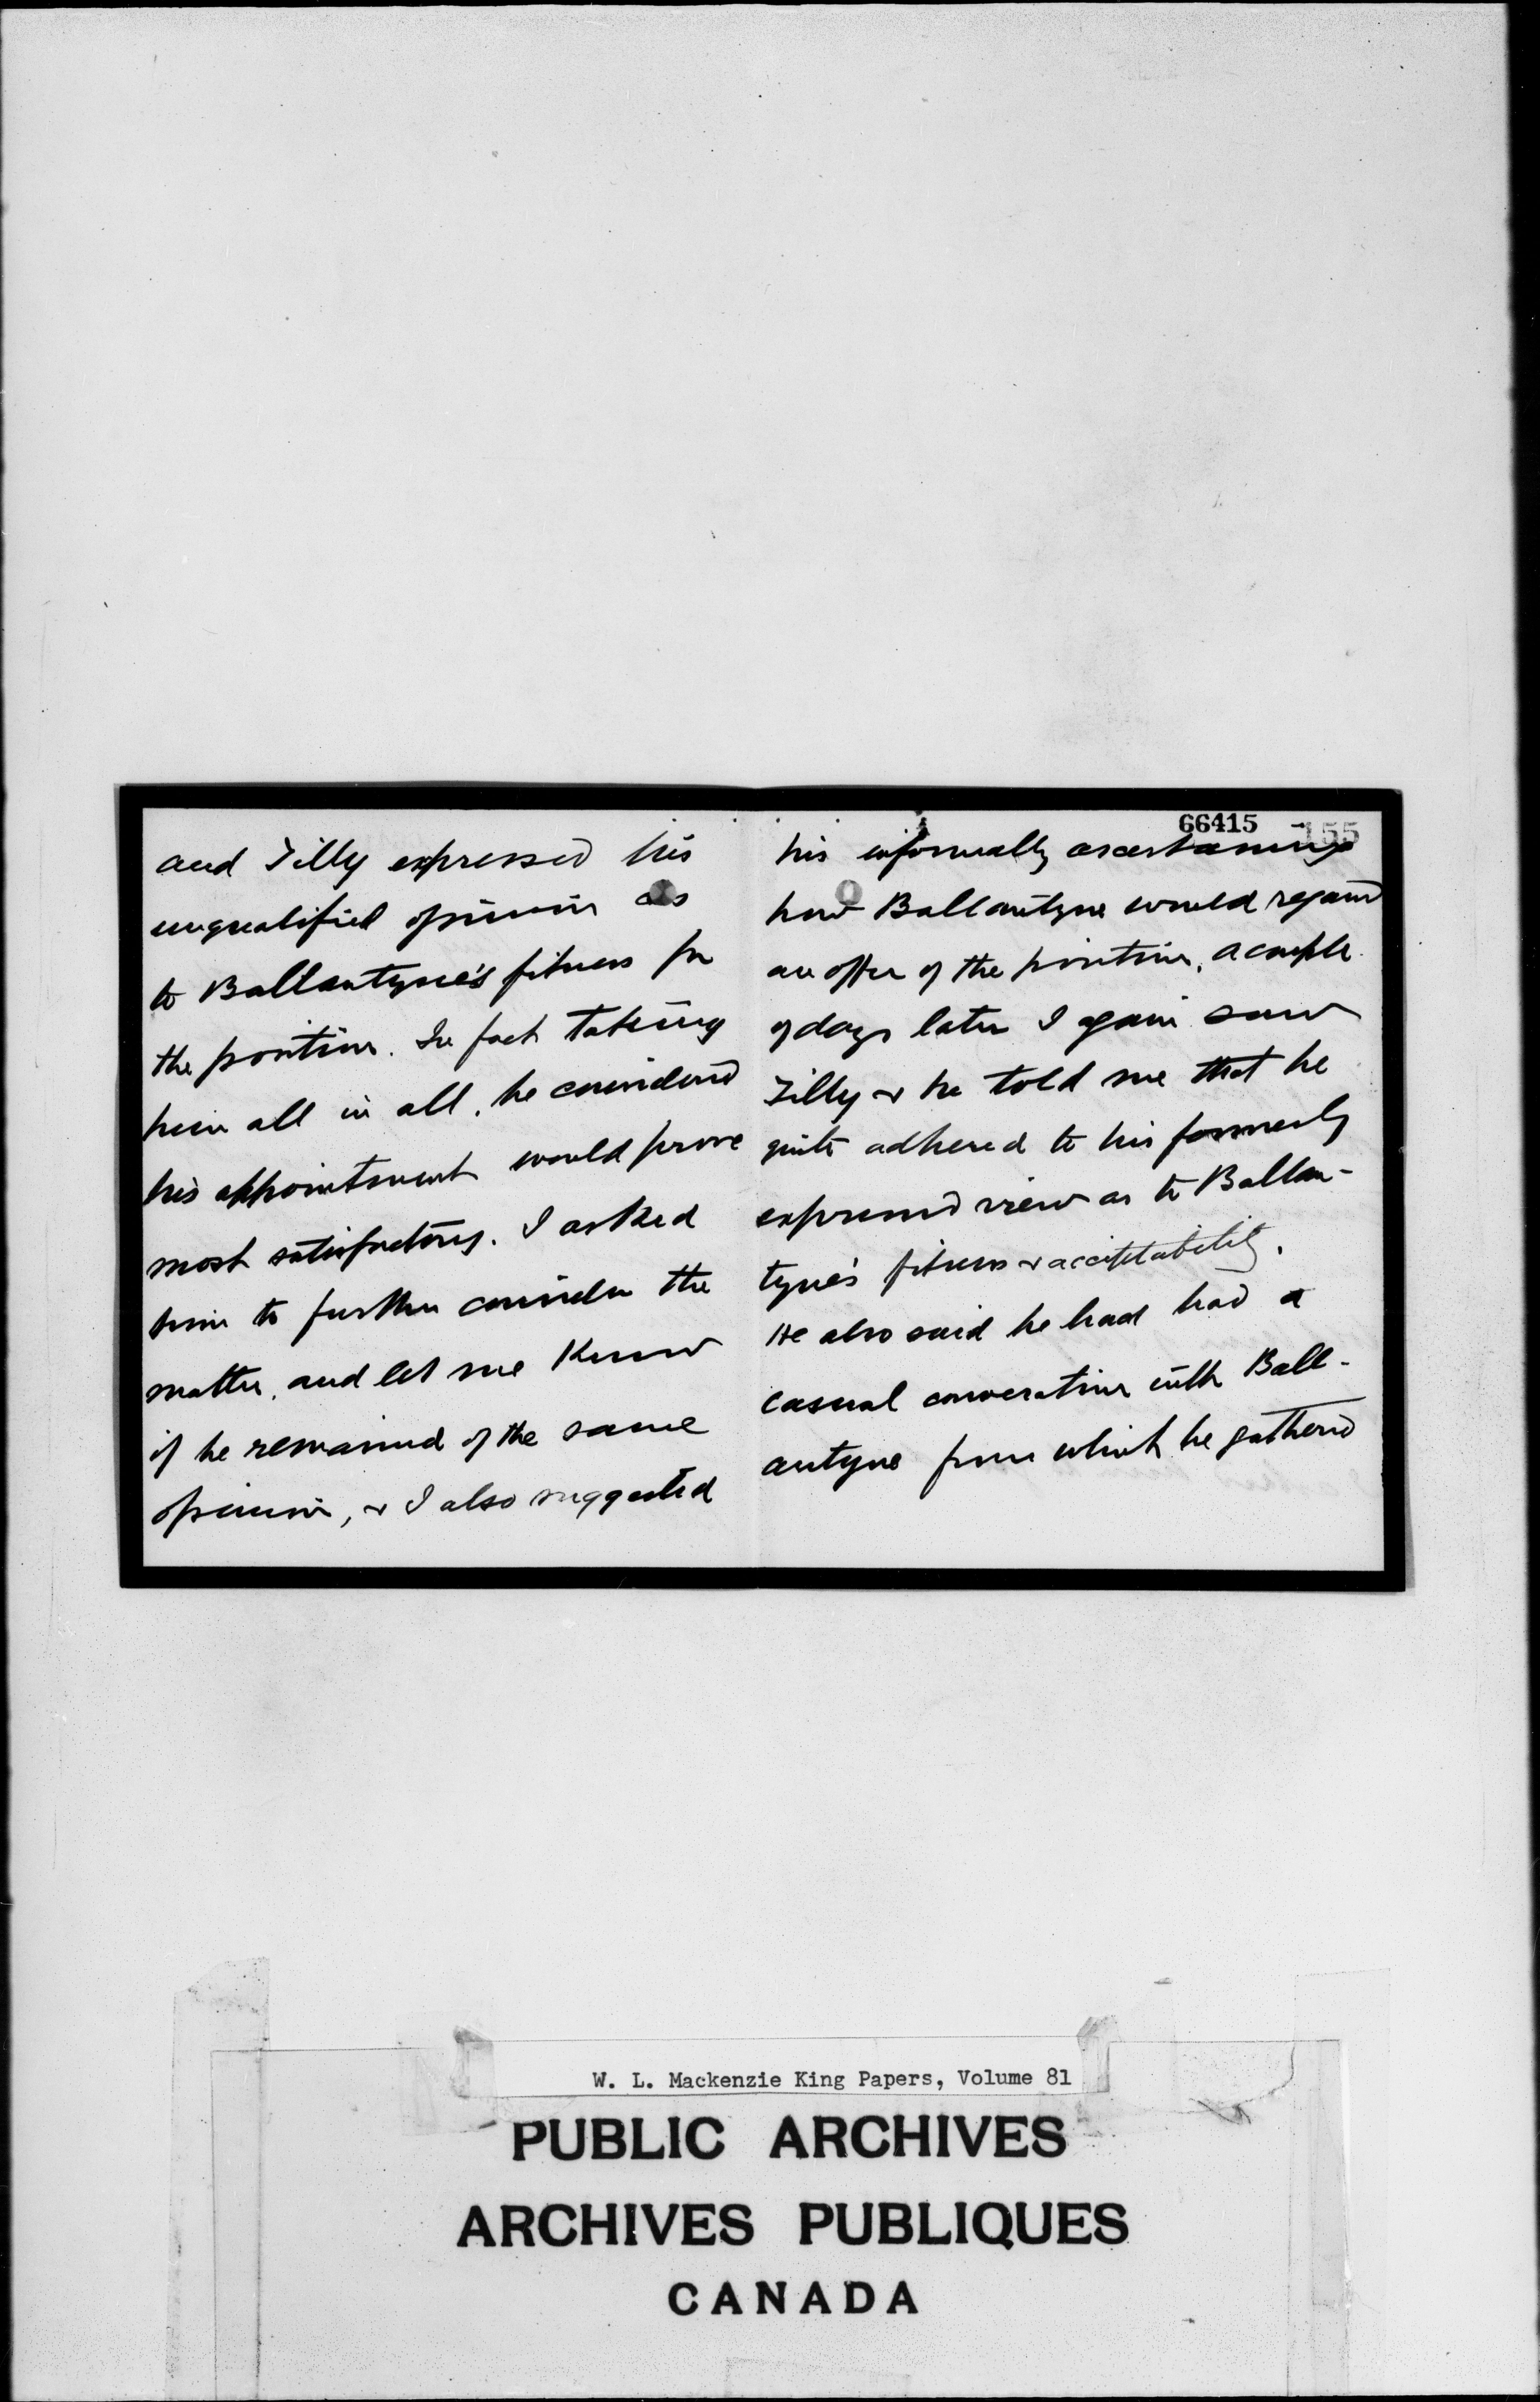 and Tilly expressed his
unqualified opinion as
to Ballantyne's fitness for
the position. In fact taking
him all in all, he considered
his appointment would prove
most satisfactory. I asked
him to further consider the
matter, and let me know
if he remained of the same
opinion, & I also suggested
66415
155
his informally ascertaining
how Ballantyne would regard
an offer of the position. A couple
of days later I again saw
Tilly & he told me that he
quite adhered to his formerly
expressed view as to Ballan-
tyne's fitness & acceptability.
He also said he had had a
casual conversation with Ball-
antyne from which he gathered
W. L. Mackenzie King Papers, Volume 81
PUBLIC ARCHIVES
ARCHIVES PUBLIQUES
CANADA